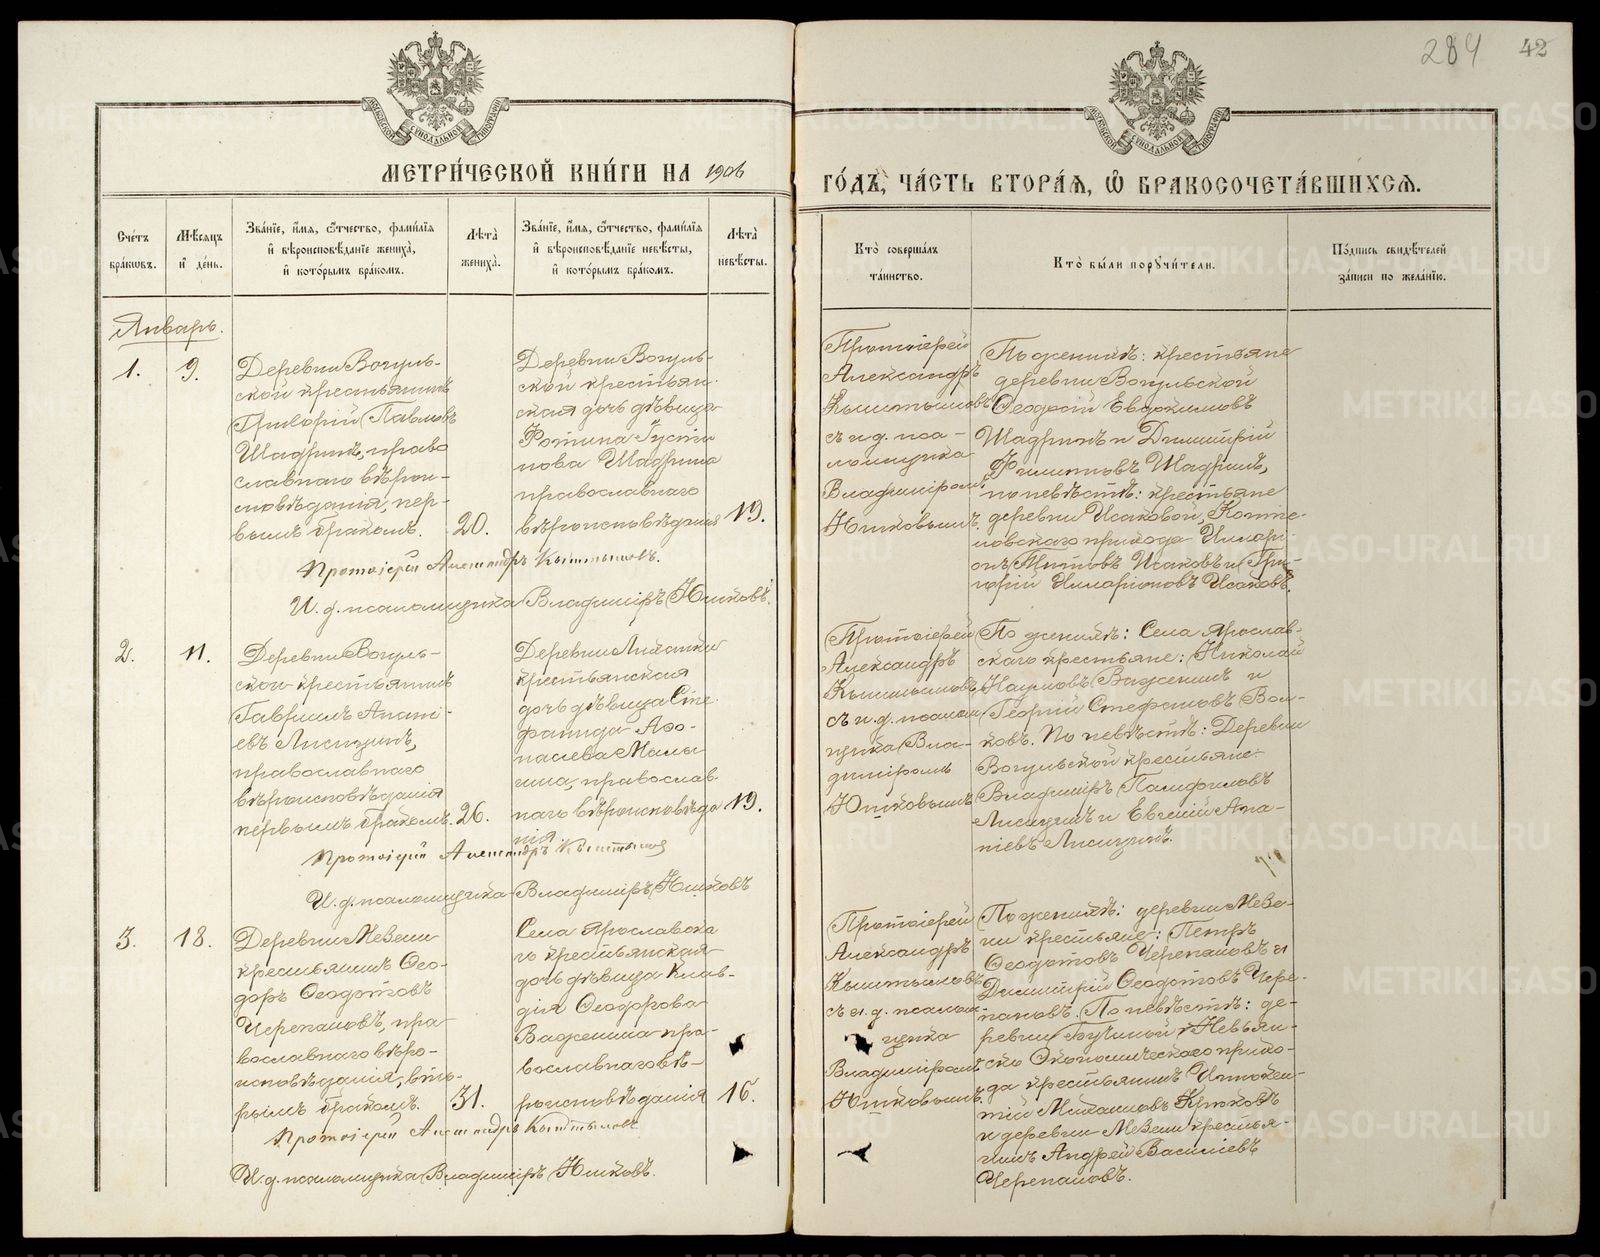 284 42
МЕТРИ́ЧЕСКОЙ КНИ́ГИ НА 1906
ГО́ДЪ, ЧА́СТЬ ВТОРА́Я, Ѽ БРАКОСОЧЕТА́ВШИХСЯ.
Счетъ
бра́ковъ.
Мѣсяцъ
и де́нь.
Зва́нїе, и́мя, ѻ́тчество, фами́лїя
и вѣроисповѣ́данїе жениха̀,
и кото́рымъ бра́комъ.
Лѣта̀
жениха̀.
Зва́нїе, и́мя, ѻ́тчество, фами́лїя
и вѣроисповѣ́данїе невѣ́сты,
и кото́рымъ бра́комъ.
Лѣта̀
невѣ́сты.
Кто̀ соверша́лъ
та́инство.
Кто̀ бы́ли поручи́тели.
По́дпись свидѣ́телей
за́писи по жела́нїю.
Январь.
1.
9.
Деревни Вогуль-
ской крестьянинъ
Григорій Павловъ
Шадринъ, право
славнаго вѣрои-
сповѣданія, пер-
вымъ бракомъ.
20.
Деревни Вогуль-
ской крестьян-
ская дочь дѣвица
Фотина Густи
нова Шадрина
православнаго
вѣроисповѣданія
19.
Протоіерей
Александръ
Кыштымовъ
съ и. д. пса-
ломщика
Владиміромъ
Юшковымъ.
По женихѣ: крестьяне
деревни Вогульской
Ѳеодосій Евдокимовъ
Шадринъ и Димитрій
Филиповъ Шадринъ,
по невѣстѣ: крестьяне
деревни Исаковой, Копте-
ловскаго прихода Иларі-
онъ Титовъ Исаковъ и Гри-
горій Иларіоновъ Исаковъ.
Протоіерей Александръ Кыштымовъ.
И. д. псаломщика Владиміръ Юшковъ.
2.
11.
Деревни Вогуль-
ской крестьянинъ
Гавріилъ Апаті-
евъ Лисицинъ,
православнаго
вѣроисповѣданія
первымъ бракомъ.
26.
Деревни
крестьянская
дочь дѣвица Сте-
фанида Аѳо-
насіева Малы
гина, православ
наго вѣроисповѣда
нія.
19.
Протоіерей
Александръ
Кыштымовъ
съ и. д. псалом
щика Вла-
диміромъ
Юшковымъ
По женихѣ: Села Ярослав-
скаго крестьяне: Николай
Наумовъ Важенинъ и
Георгій Стефановъ Вол-
ковъ. По невѣстѣ: Деревни
Вогульской крестьяне
Владиміръ Памфиловъ
Лисицинъ и Евгеній Апа-
тіевъ Лисицинъ.
Протоіерей Александръ Кыштымовъ
И. д. псаломщика Владиміръ Юшковъ
3.
18.
Деревни Мезени
крестьянинъ Ѳео-
доръ Ѳеодотовъ
Черепановъ, пра-
вославнаго вѣро-
исповѣданія, вто-
рымъ бракомъ.
31.
Села Ярославска
го крестьянская
дочь дѣвица Клав-
дія Ѳеодорова
Важенина пра-
вославнаго вѣ-
роисповѣданія
16.
Протоіерей
Александръ
Кыштымовъ
съ и. д. псалом-
щика
Владиміромъ
Юшковымъ.
По женихѣ: деревни Мезе-
ни крестьяне: Петръ
Ѳеодотовъ Черепановъ и
Димитрій Ѳеодотовъ Чере-
пановъ. По невѣстѣ: де-
ревни Невьян-
ско Экономическаго прихо-
да крестьянинъ Иннокен-
тій Михаиловъ Крюковъ
и деревни Мезени крестья-
нинъ Андрей Василіевъ
Черепановъ.
Протоіерей Александръ Кыштымовъ
И. д. псаломщика Владиміръ Юшковъ.
METRIKI.GASO-URAL.RU